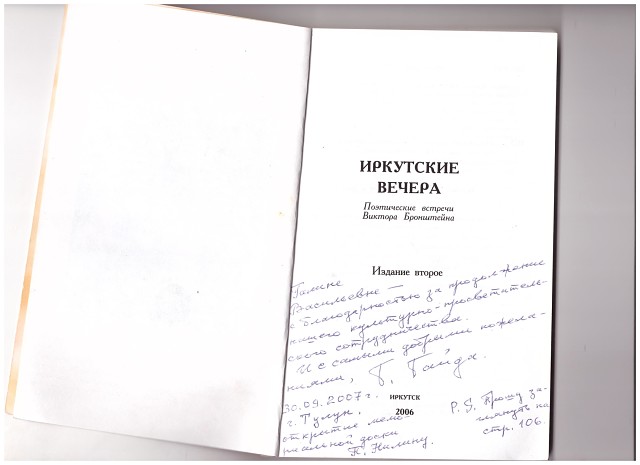 ИРКУТСКИЕ
ВЕЧЕРА
Поэтические встречи
Виктора Бронштейна
Издание второе
Галине
Васильевне —
с благодарностью за продолжение
нашего культурно-просветитель-
ского сотрудничества.
И с самыми добрыми пожела-
ниями, Г. Гайда.
30.09.2007 г.
г. Тулун,
открытие мемо-
риальной доски
П. Нилину.
ИРКУТСК
2006
P.S. Прошу за-
глянуть на
стр. 106.